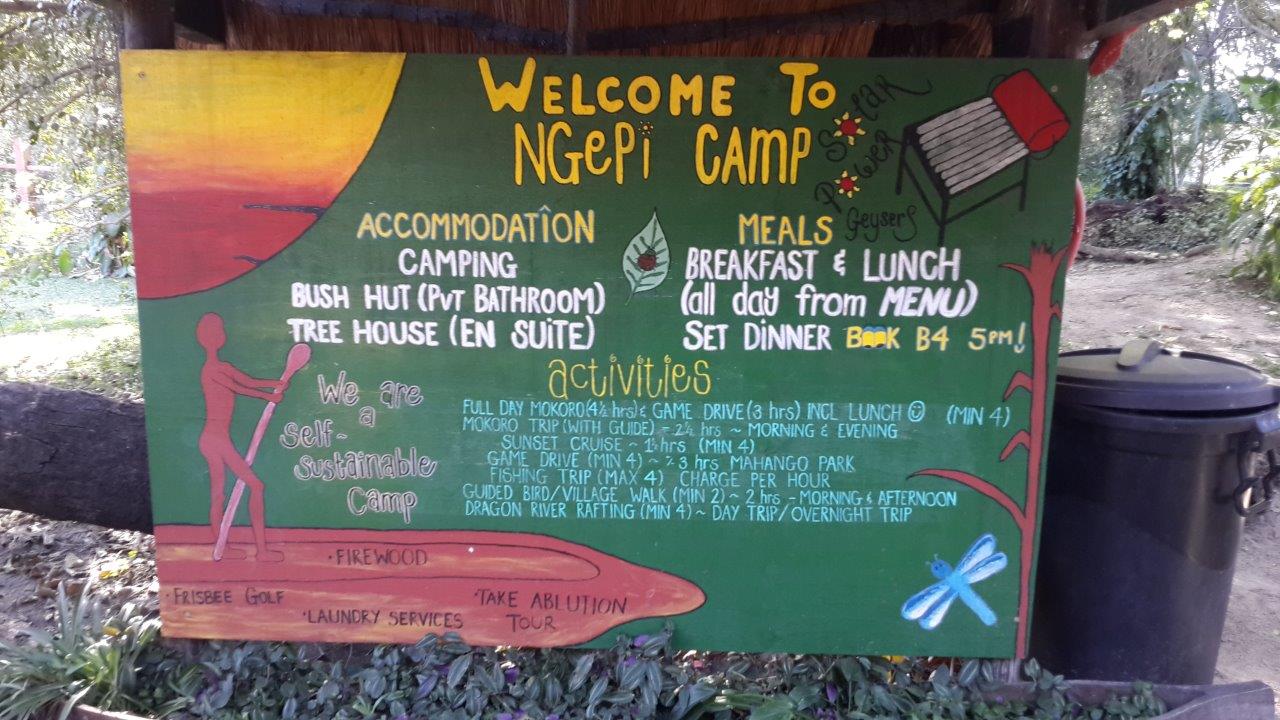 WELCOME TO
NGEPI CAMP
SOLAR
POWER
GEYSERS
ACCOMMODATION
CAMPING
BUSH HUT (PVT BATHROOM)
TREE HOUSE (EN SUITE)
MEALS
BREAKFAST & LUNCH
(all day from MENU)
SET DINNER BOOK B4 5PM!
activities
FULL DAY MOKORO (4½ hrs) & GAME DRIVE (3 hrs) INCL LUNCH ☺ (MIN 4)
MOKORO TRIP (WITH GUIDE) = 2½ hrs ~ MORNING & EVENING
SUNSET CRUISE ~ 1½ hrs (MIN 4)
GAME DRIVE (MIN 4) ~ 3 hrs MAHANGO PARK
FISHING TRIP (MAX 4) CHARGE PER HOUR
GUIDED BIRD/VILLAGE WALK (MIN 2) ~ 2 hrs - MORNING & AFTERNOON
DRAGON RIVER RAFTING (MIN 4) ~ DAY TRIP/OVERNIGHT TRIP
We are
a
Self-
sustainable
Camp
·FIREWOOD
·FRISBEE GOLF
·LAUNDRY SERVICES
·TAKE ABLUTION
TOUR